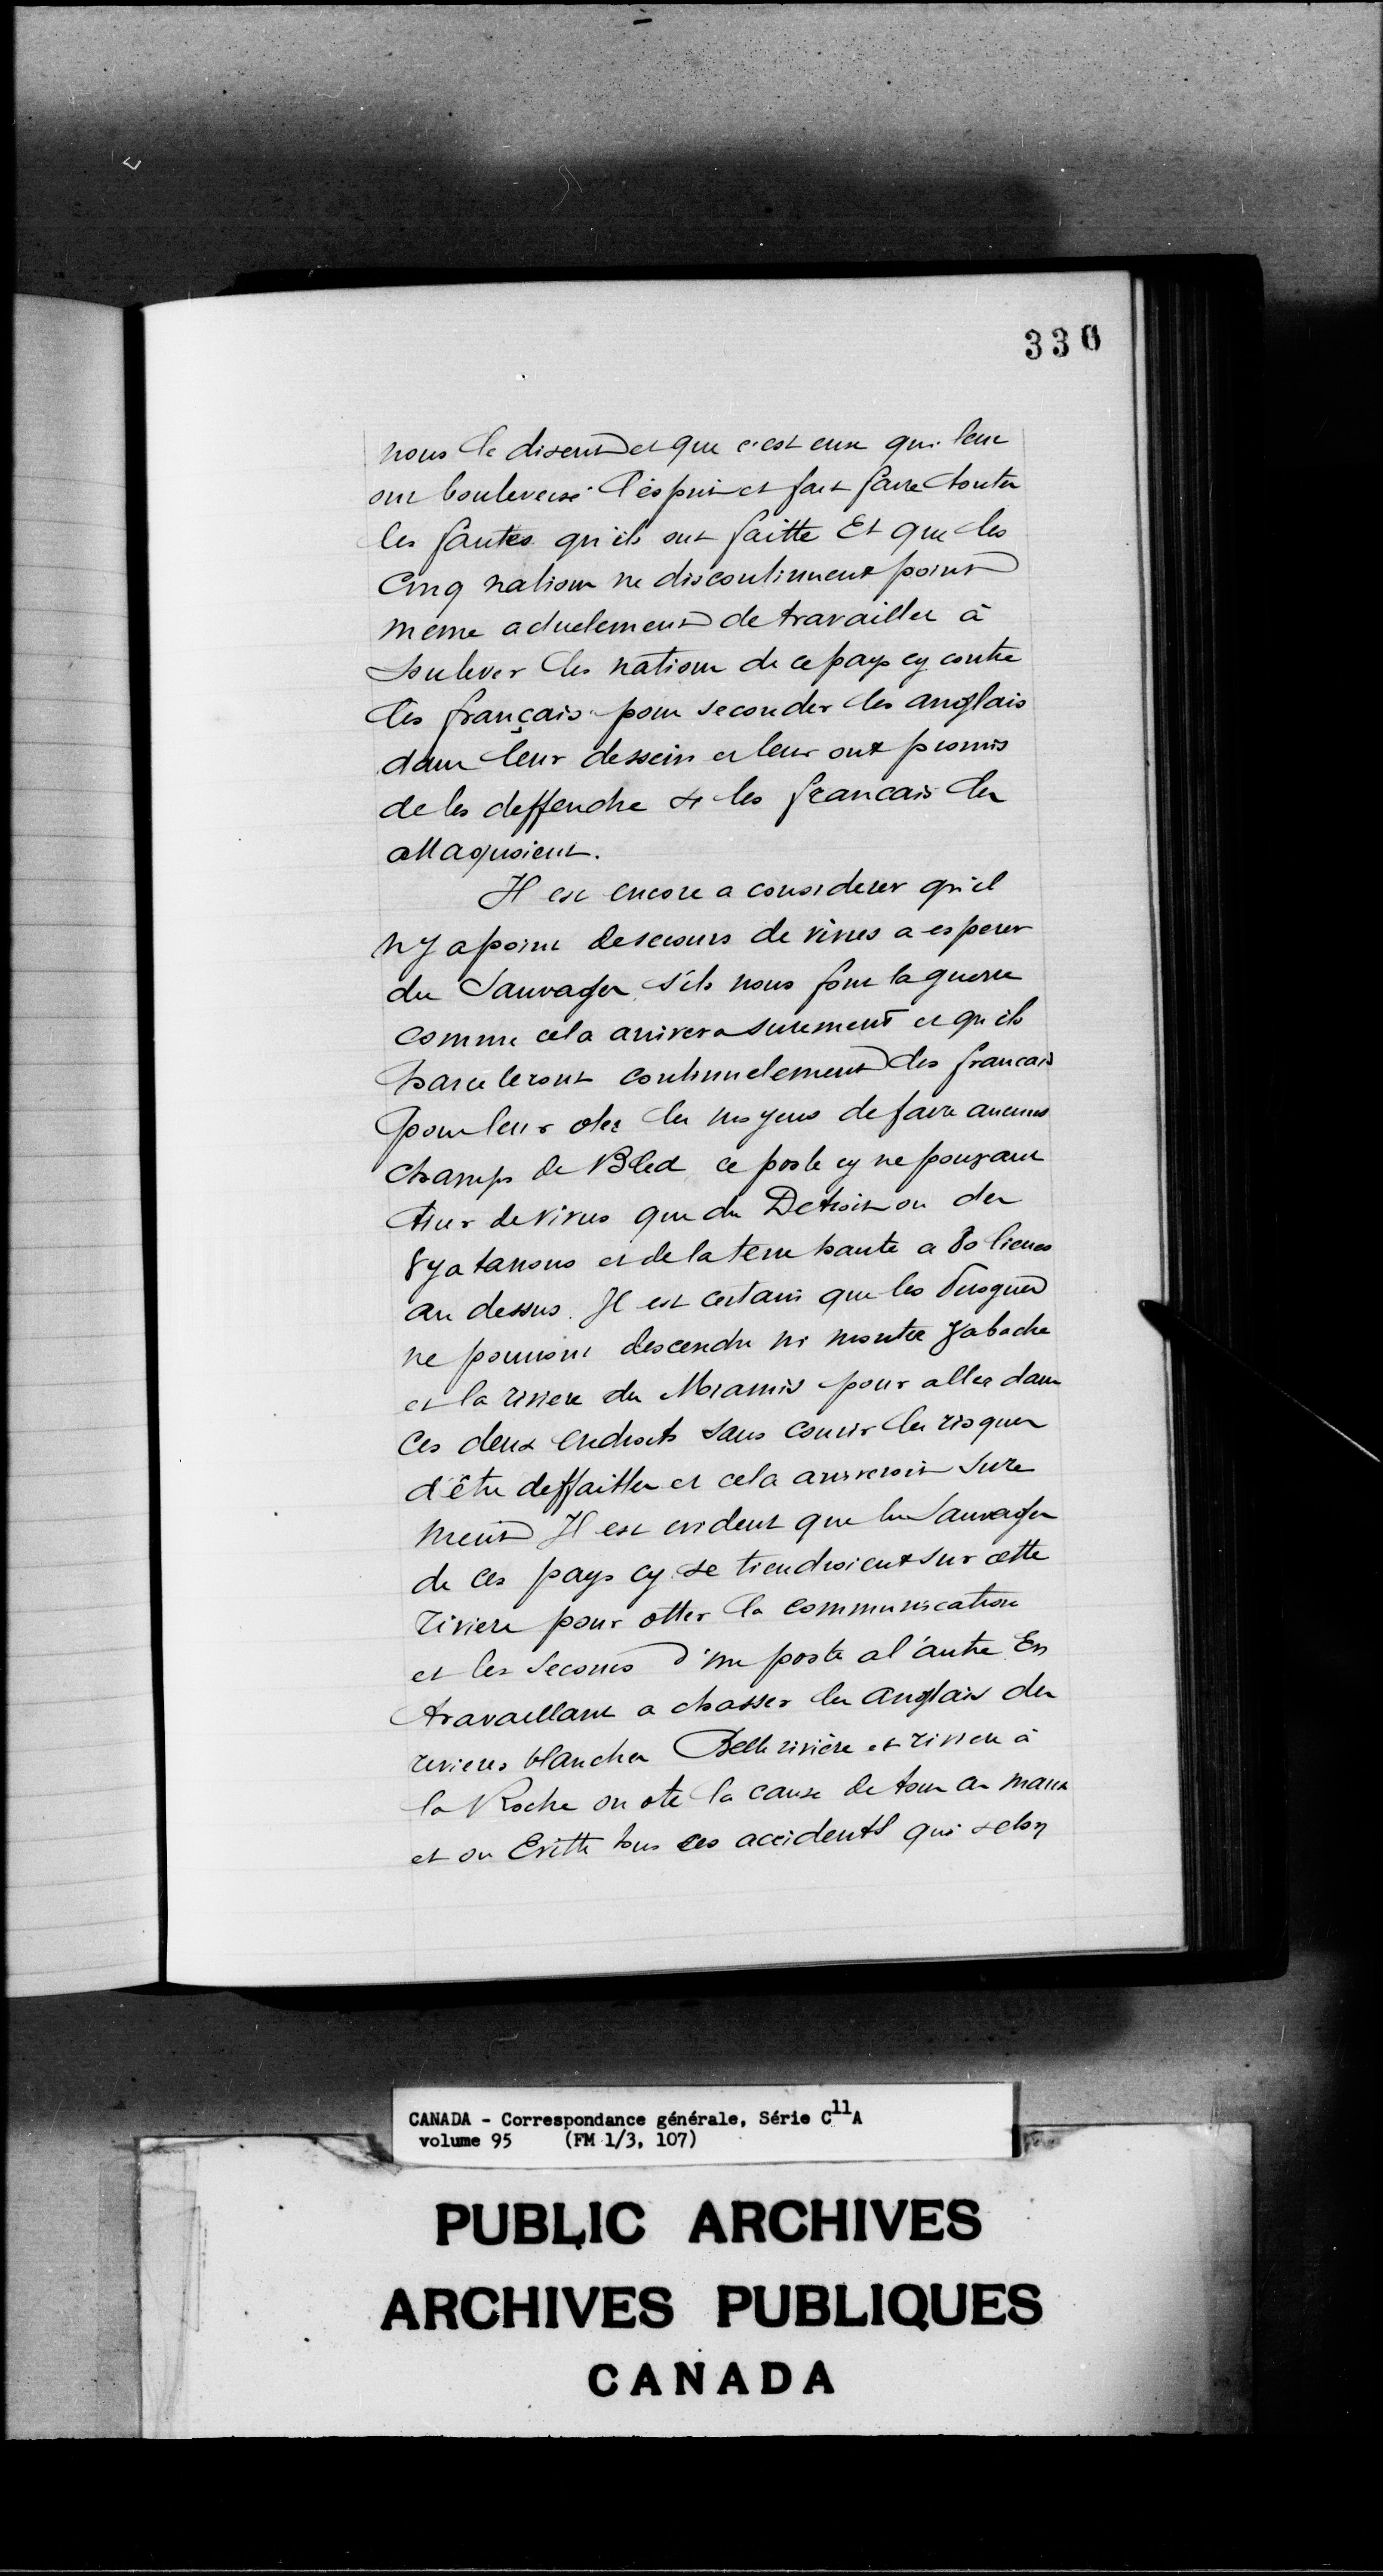 336
nous le disent et que c'est eux qui leur
ont bouleversé l'esprit et fait faire toutes
les fautes qu'ils ont faitte Et que les
Cinq nations ne discontinuent point
meme actuelement de travailler à
soulever les nations de ce pays cy contre
les français pour seconder les anglais
dans leur dessein et leur ont promis
de les deffendre si les francais les
attaquoient.
Il est encore a considerer qu'il
ny a point de secours de vivres a esperer
des Sauvages s'ils nous font la guerre
comme cela arrivera surement et qu'ils
harceleront continuelement les francais
pour leur oter les moyens de faire aucuns
champs de Bled ce poste cy ne pouvant
tirer de vivres que du Detroit ou des
8yatanons et de la terre haute a 80 lieues
au dessus. Il est certain que les
ne pourront descendre ni monter 8abache
et la riviere des Miamis pour aller dans
Ces deux endroits sans courir les risques
d'être deffaittes et cela arriveroit sure
ment Il est evident que les Sauvages
de ces pays cy se tiendroient sur cette
riviere pour otter la communication
et les secours d'un poste a l'autre En
travaillant a chasser les anglais des
rivieres blanches Belle rivière et riviere à
la Roche on ote la cause de tous ces maux
et on Evitte tous ces accidents qui selon
CANADA - Correspondance générale, Série C11A
volume 95 (FM 1/3, 107)
PUBLIC ARCHIVES
ARCHIVES PUBLIQUES
CANADA